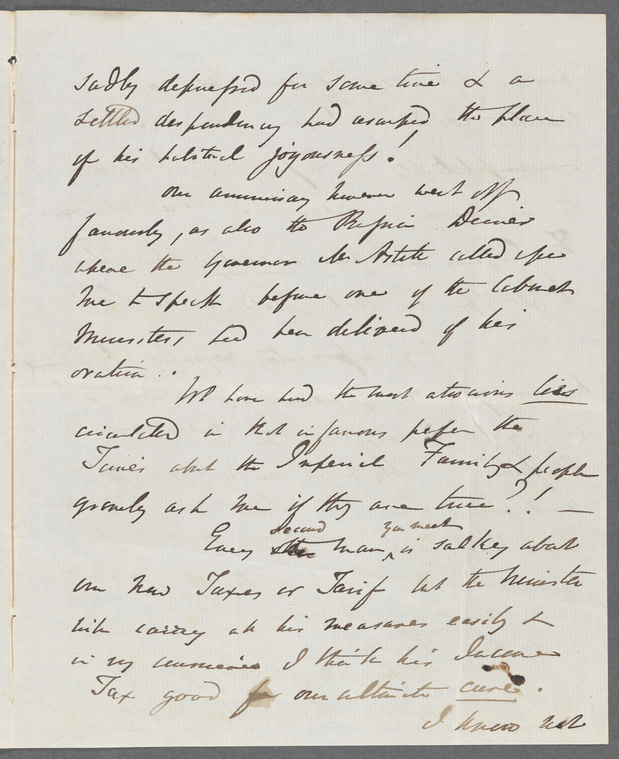 sadly depressed for some time & a
settled despondency had usurped the place
of his habitual joyousness!
Our anniversary however went off
famously, as also the Russian Dinner
where the Governor Mr Astell called upon
me to speak before one of the Cabinet
Ministers had been delivered of his
oration..
We have had the most atrocious lies
circulated in that infamous paper the
Times about the Imperial Family & people
gravely ask me if they are true?! —
Every second man you meet is talking about
our New Taxes or Tarif but the Minister
will carry all his measures easily &
in my I think his Income
Tax good for our ultimate cure.
I know not